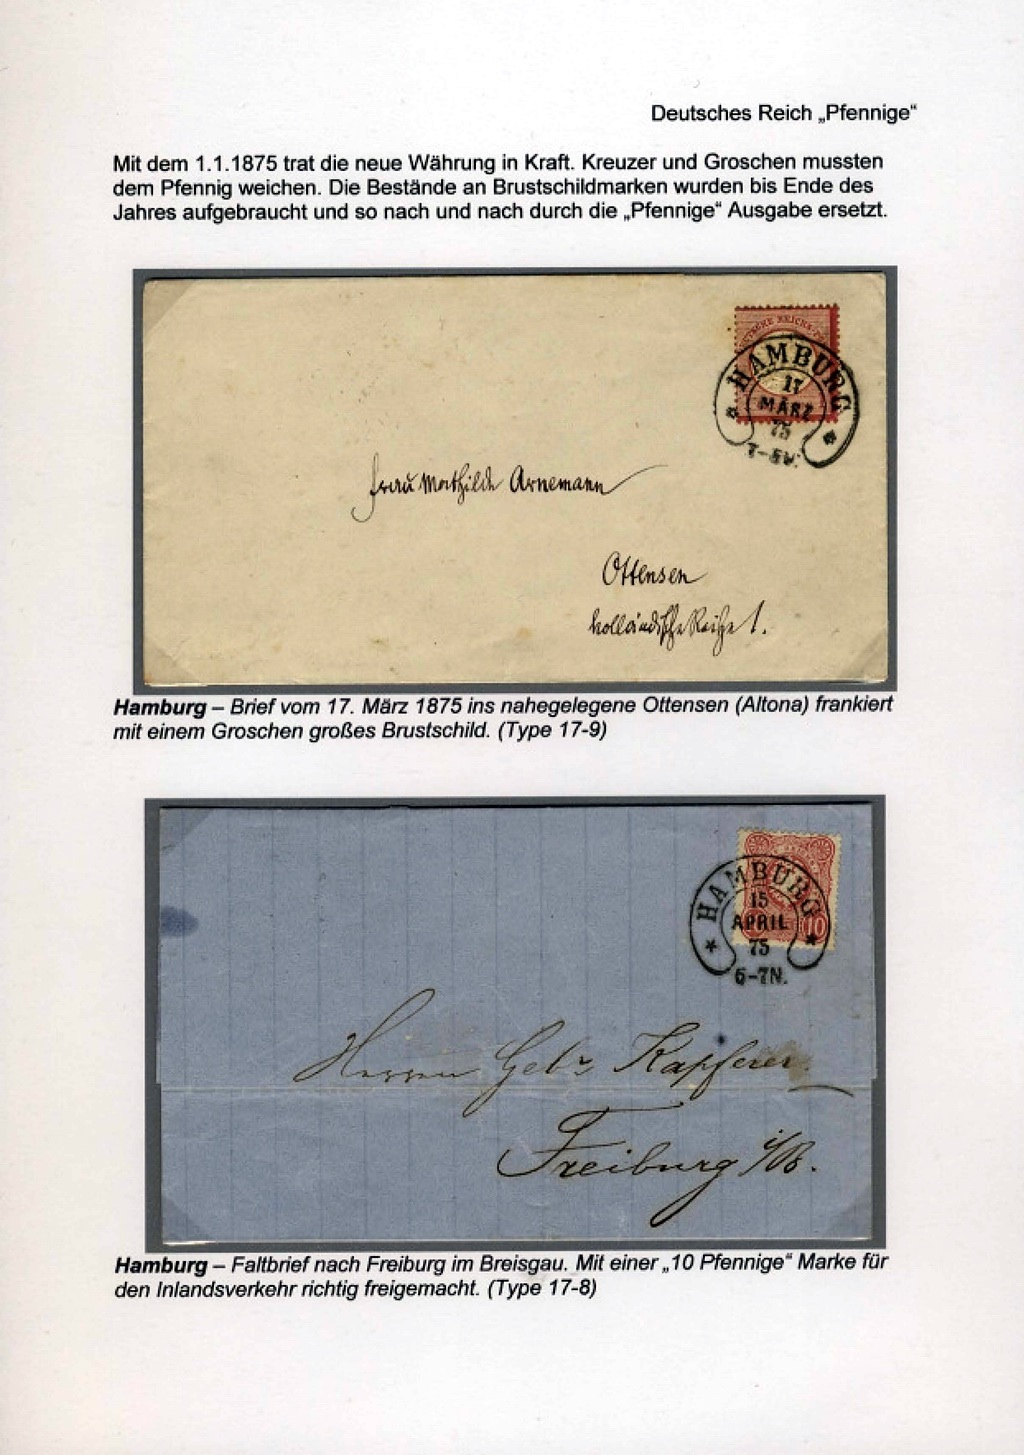 Deutsches Reich „Pfennige“
Mit dem 1.1.1875 trat die neue Währung in Kraft. Kreuzer und Groschen mussten
dem Pfennig weichen. Die Bestände an Brustschildmarken wurden bis Ende des
Jahres aufgebraucht und so nach und nach durch die „Pfennige“ Ausgabe ersetzt.
HAMBURG
17
MÄRZ
75
Frau Mathilde Arnemann
Ottensen
holländische Reihe 1.
Hamburg – Brief vom 17. März 1875 ins nahegelegene Ottensen (Altona) frankiert
mit einem Groschen großes Brustschild. (Type 17-9)
HAMBURG
15
APRIL
75
6-7N.
10
Herren Gebr Kapferer
Freiburg i/B.
Hamburg – Faltbrief nach Freiburg im Breisgau. Mit einer „10 Pfennige“ Marke für
den Inlandsverkehr richtig freigemacht. (Type 17-8)